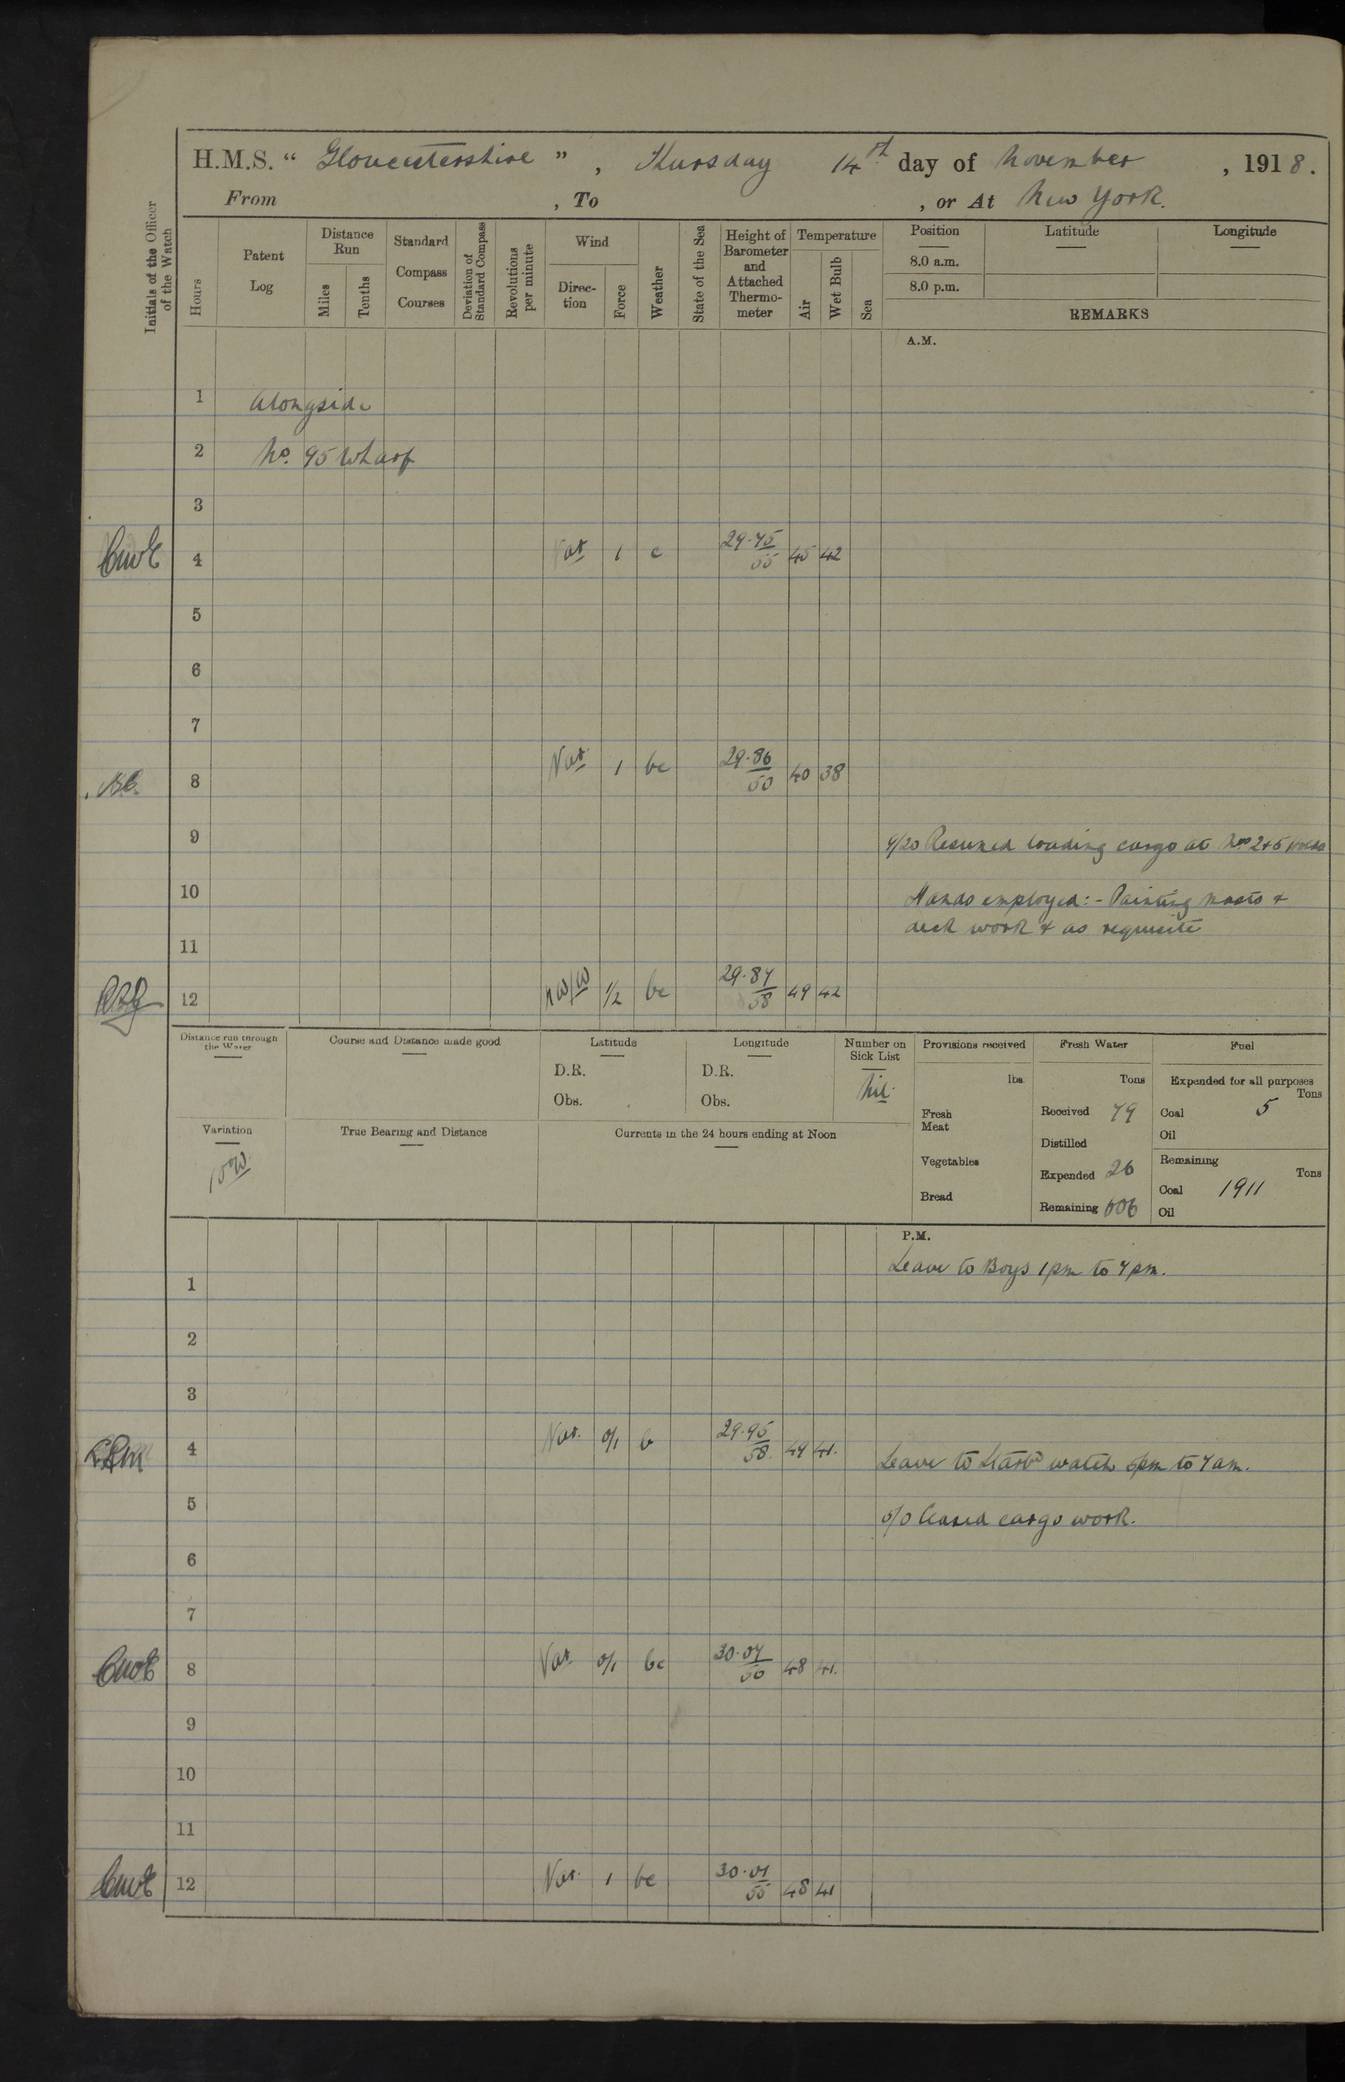 H.M.S. “ Gloucestershire ” , Thursday 14th day of November , 1918.
From , To , or At New York.
Initials of the Officer of the Watch
Hours
Patent Log
Distance Run
Miles
Tenths
Standard Compass Courses
Deviation of Standard Compass
Revolutions per minute
Wind
Direction
Force
Weather
State of the Sea
Height of Barometer and Attached Thermometer
Temperature
Air
Wet Bulb
Sea
Position
8.0 a.m.
8.0 p.m.
Latitude
Longitude
REMARKS
A.M.
1 Alongside
2 No. 95 Wharf
3
4 Var 1 c 29.75 55 45 42
5
6
7
8 Var 1 bc 29.86 50 40 38
9 9/20 Resumed loading cargo at Nos 2 & 5 Holds
10 Hands employed:- Painting masts &
deck work & as requisite
11
12 NW/W 1/2 bc 29.87 58 49 42
Distance run through the Water
Course and Distance made good
Latitude
D.R.
Obs.
Longitude
D.R.
Obs.
Number on Sick List
Nil.
Provisions received
lbs.
Fresh Meat
Vegetables
Bread
Fresh Water
Tons
Received 79
Distilled
Expended 26
Remaining 606
Fuel
Expended for all purposes
Tons
Coal 5
Oil
Remaining
Tons
Coal 1911
Oil
Variation
10°W
True Bearing and Distance
Currents in the 24 hours ending at Noon
P.M.
Leave to Boys 1pm to 7pm.
1
2
3
4 Var. 0/1 b 29.95 58 49 41.
Leave to Starbd watch 4pm to 7am.
5 5/0 Ceased cargo work.
6
7
8 Var 0/1 bc 30.04 50 48 41.
9
10
11
12 Var. 1 bc 30.01 55 48 41